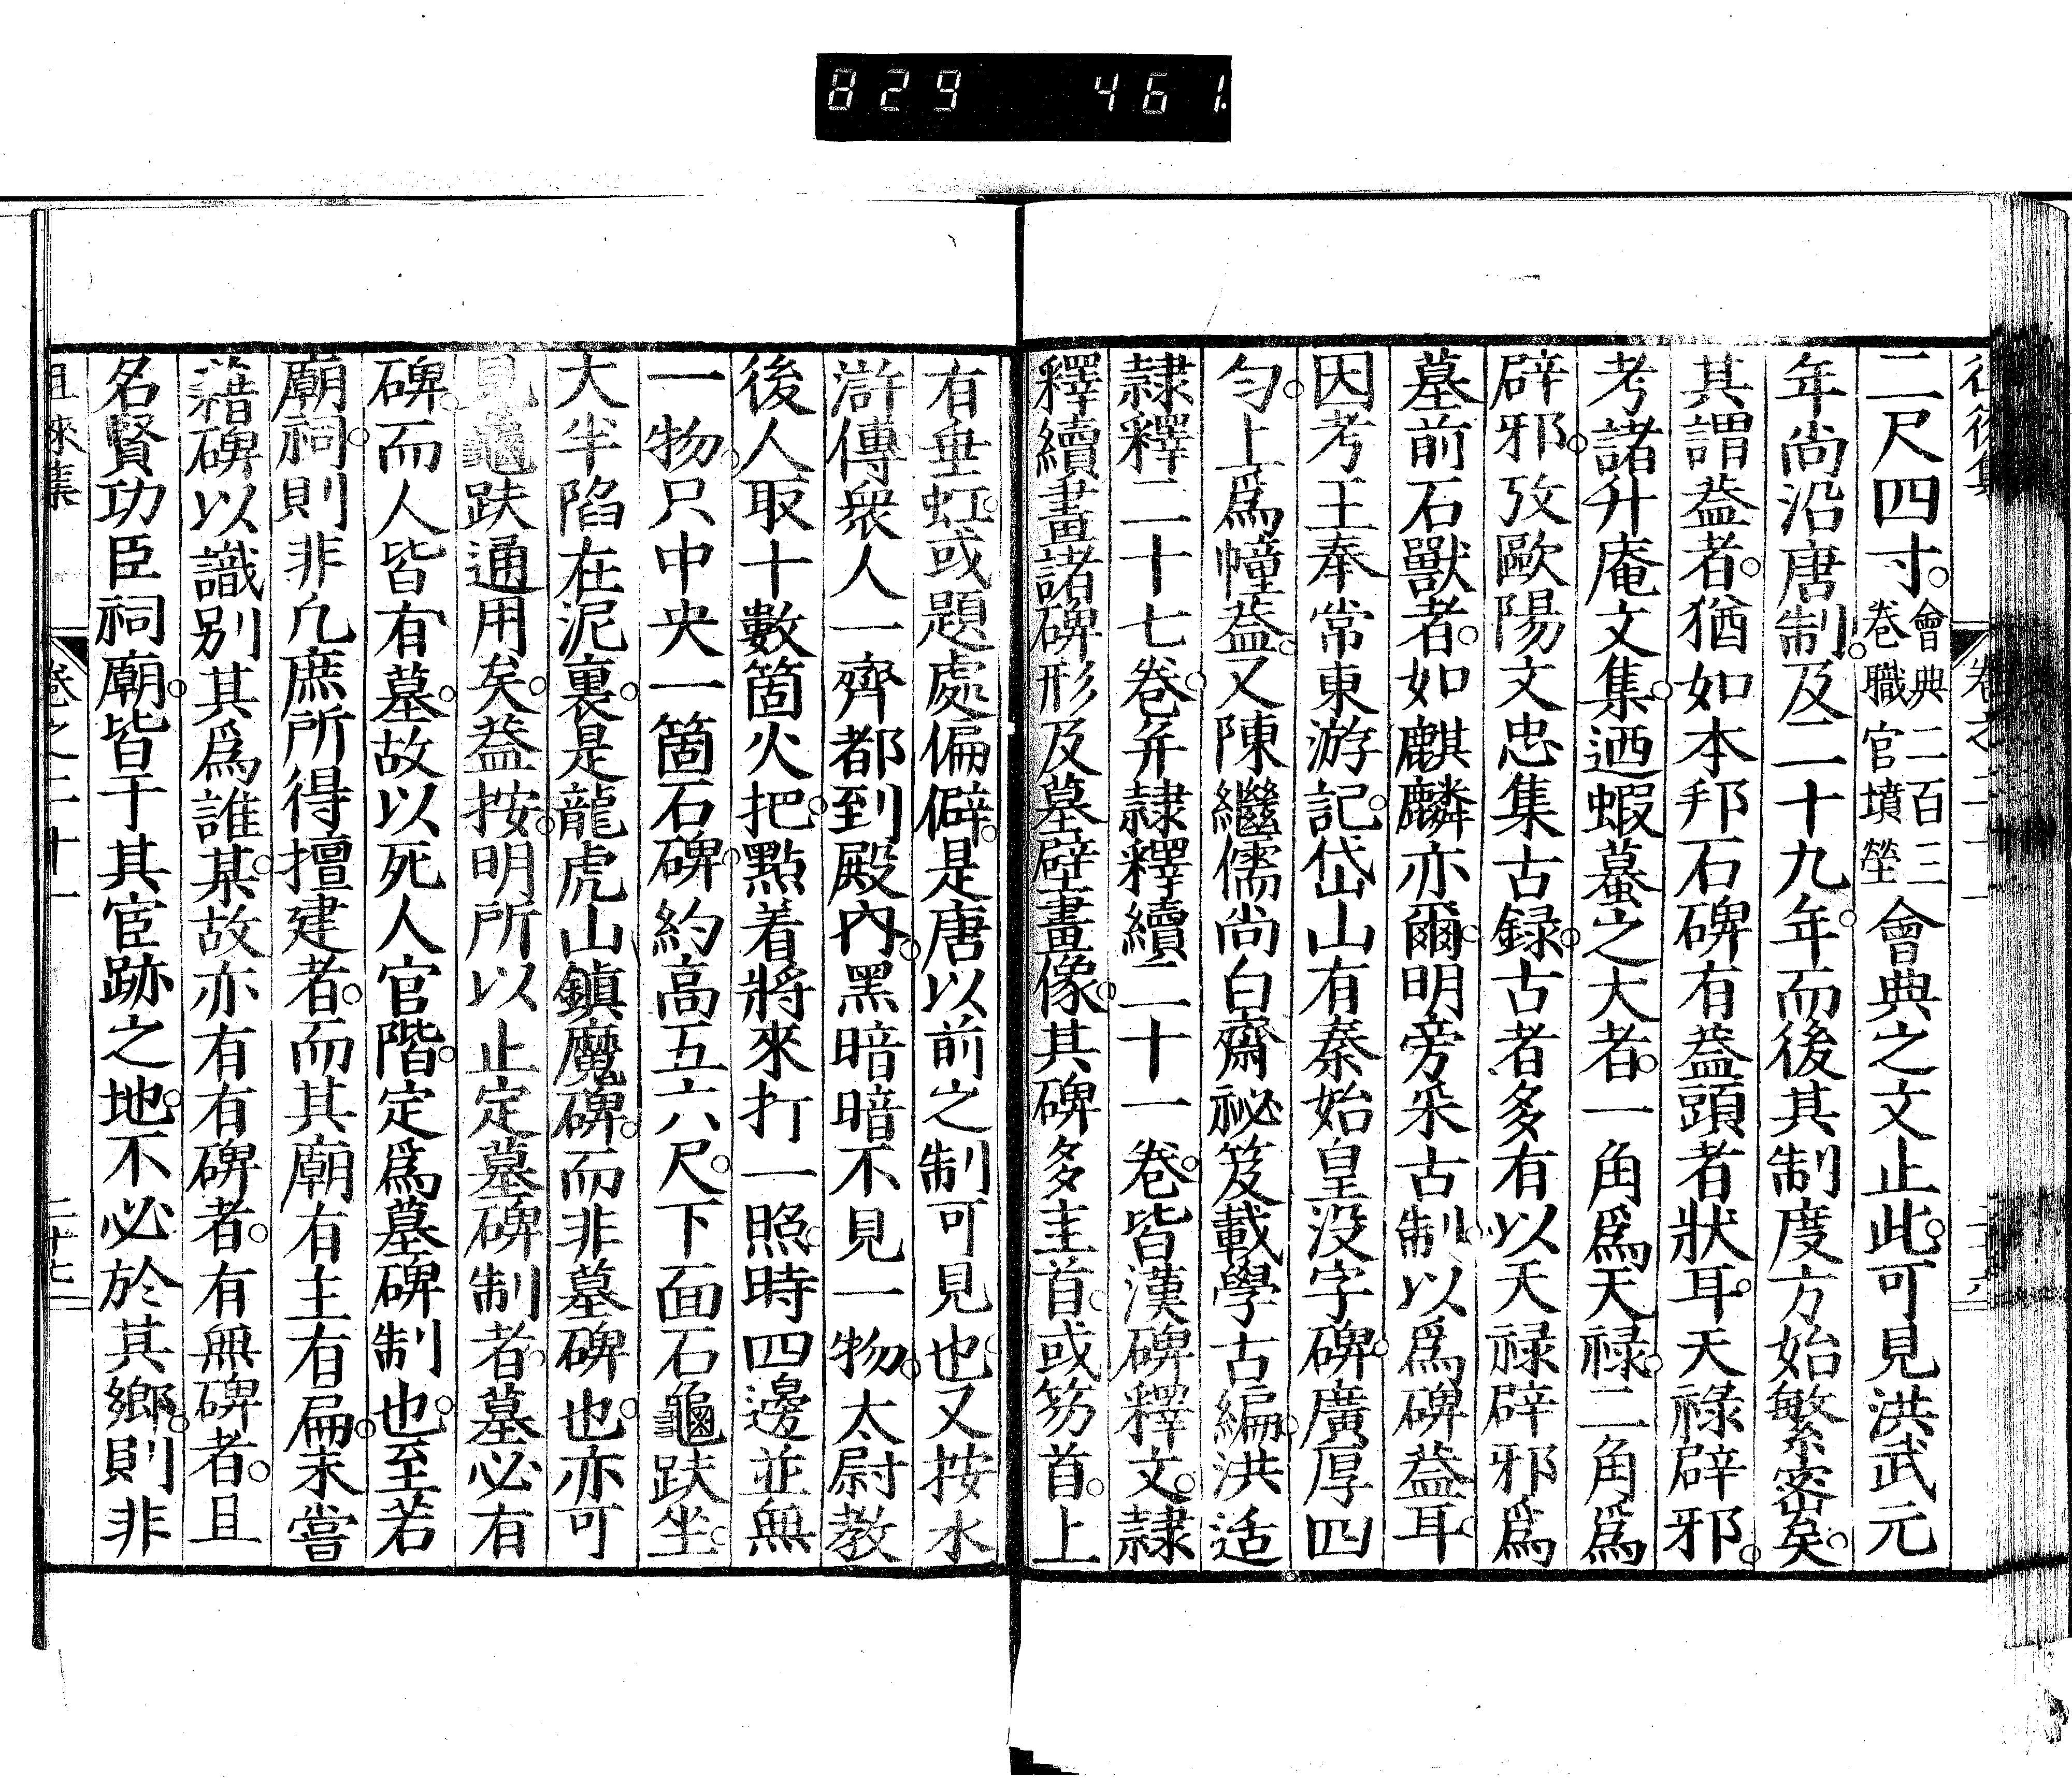 829 461
二尺四寸。會典二百三卷職官墳塋會典之文止此。可見洪武元
年尚沿唐制。及二十九年。而後其制度方始繁密矣。
其謂葢者。猶如本邦石碑有葢頭者狀耳。天祿辟邪。
考諸升庵文集。迺蝦蟇之大者。一角爲天祿。二角爲
辟邪。攷歐陽文忠集古録。古者多有以天祿辟邪爲
墓前石獸者。如麒麟亦爾。明旁采古制。以爲碑葢耳。
因考王奉常東游記。岱山有秦始皇没字碑。廣厚四
勻。上爲幢葢。又陳繼儒尚白齋祕笈載學古編。洪适
隷釋二十七卷。幷隷釋續二十一卷。皆漢碑釋文。隷
釋續畫諸碑形及墓壁畫像。其碑多圭首。或笏首。上
有垂虹。或題處偏僻。是唐以前之制可見也。又按水
滸傳衆人一齊都到殿內。黑暗暗不見一物。太尉教
後人取十數箇火把。點着將來打一照。時四邊並無
一物。只中央一箇石碑。約高五六尺。下面石龜趺坐。
大半陷在泥裏。是龍虎山鎮魔碑。而非墓碑也。亦可
見龜趺通用矣。葢按。明所以止定墓碑制者。墓必有
碑。而人皆有墓。故以死人官階。定爲墓碑制也。至若
廟祠。則非凢庶所得擅建者。而其廟有主有扁。未嘗
藉碑以識别其爲誰某。故亦有有碑者。有無碑者。且
名賢功臣祠廟。皆于其宦跡之地。不必於其鄉。則非
徂徠集 卷之二十一 二十七